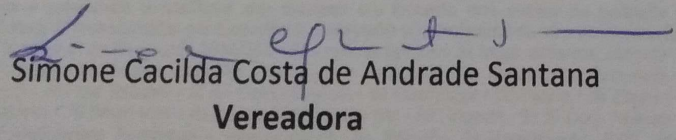 Simone Cacilda Costa de Andrade Santana
Vereadora